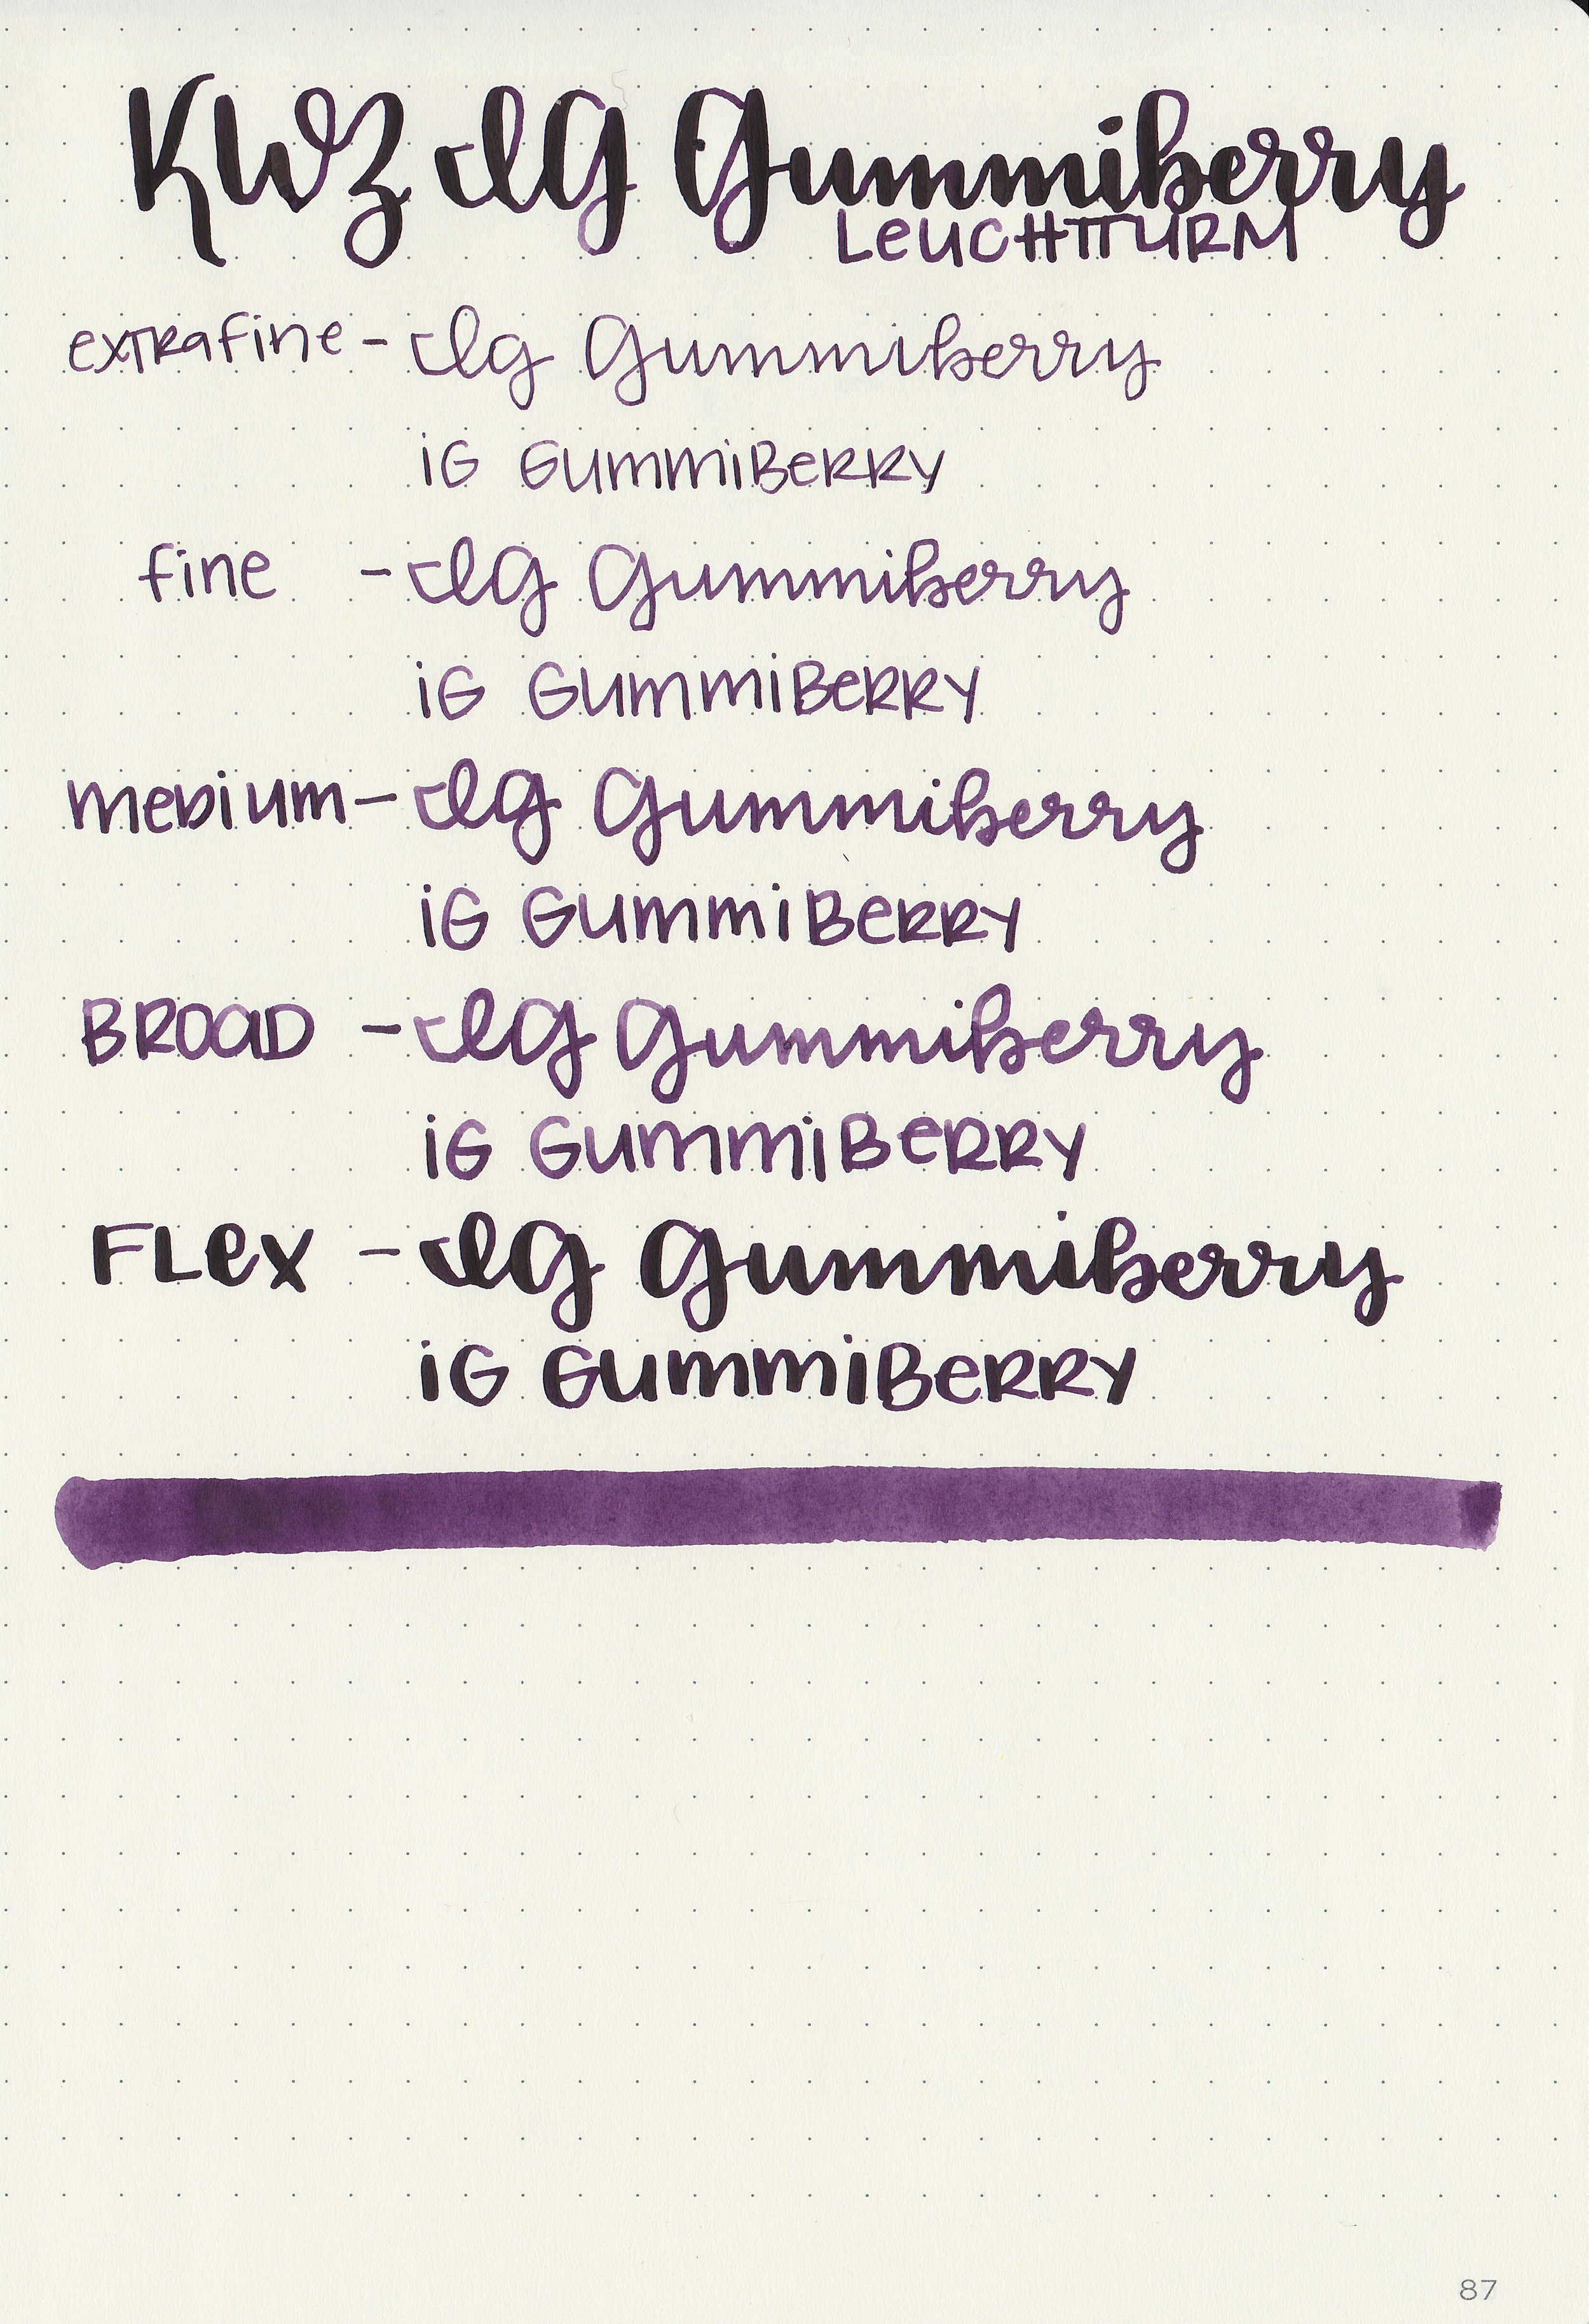 KWZ IG Gummiberry
LeUCHTTURM
exTRafine - Ig Gummiberry
iG GummiBeRRY
fine - IG Gummiberry
iG GummiBeRRY
meDium - IG Gummiberry
iG GummiBeRRY
BROaD - IG Gummiberry
iG GummiBeRRY
FLex - IG Gummiberry
iG GummiBeRRY
87